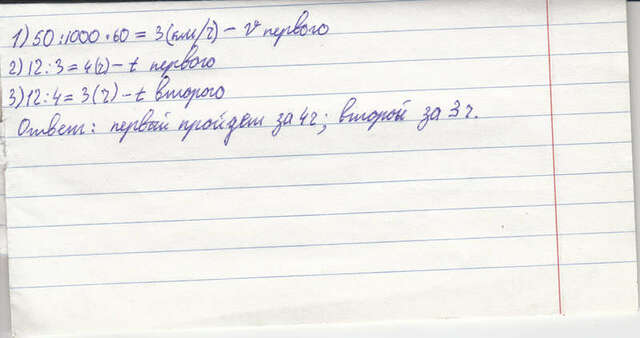 1) 50 : 1000 · 60 = 3 (км/ч) – v первого
2) 12 : 3 = 4 (ч) – t первого
3) 12 : 4 = 3 (ч) – t второго
Ответ: первый пройдет за 4 ч; второй за 3 ч.